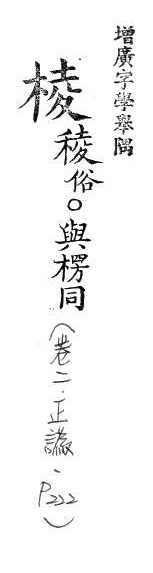 增廣字學舉隅
棱稜俗○與楞同
(卷二.正譌、P222)